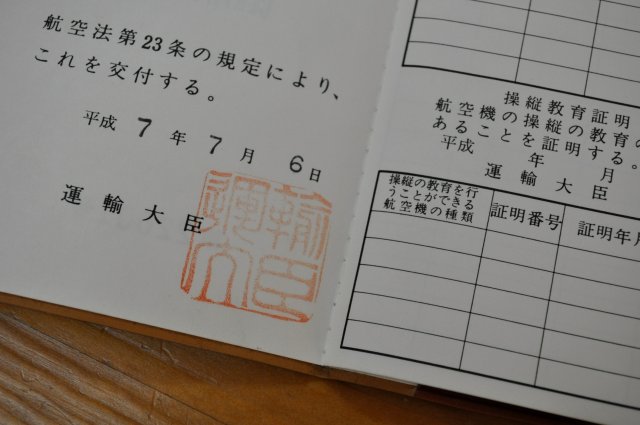 航空法第23条の規定により、
これを交付する。
平成 7 年 7 月 6 日
運輸大臣
運輸大臣
操縦教育証明
操縦の教育の
航空機の操縦
あることを証明する。
平成 年 月
運輸大臣
操縦の教育を行
うことができる
航空機の種類
証明番号
証明年月